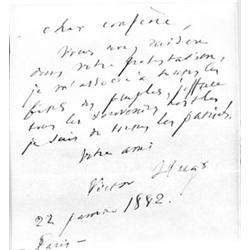 cher confrère,
vous avez raison
dans votre protestation,
je m'associe à
des peuples, j'efface
tous les souvenirs hostiles
je suis de toutes les patries.
votre ami
Victor Hugo
22 janvier 1882.
Paris —